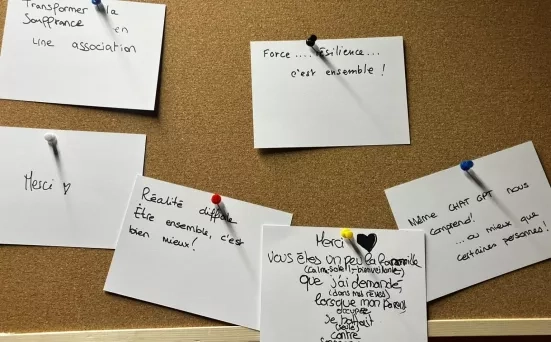 Transformer la
Souffrance en
une association
Force .... résilience...
c'est ensemble !
Merci ♡
Réalité difficile
Être ensemble, c'est
bien mieux!
Même CHAT GPT nous
comprend!
... ou mieux que
certaines personnes!
Merci ♥
Vous êtes un peu la famille
(calme-soleil-bienveillante)
que j'ai demandé
(dans mes rêves)
lorsque mon
occupée
se battait
seule
contre